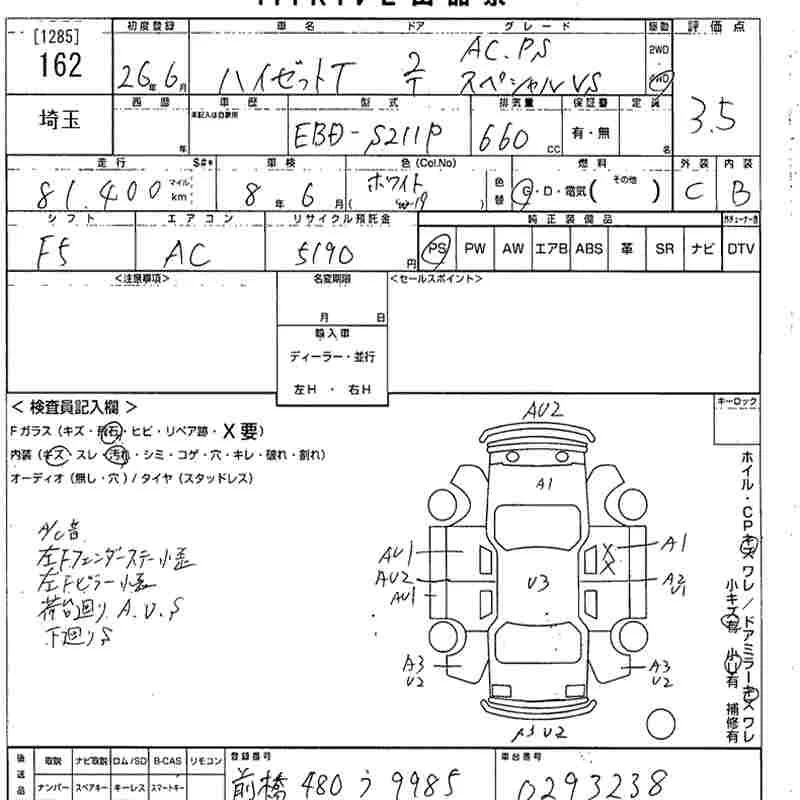 初度登録 車名 ドア グレード 駆動 評価点
[1285]
162
26年6月 ハイゼットT 2/T AC.PS スペシャルVS 2WD・4WD
3.5
埼玉
西暦 車歴 型式 排気量 保証書 定員
未記入は自家用
年 EBD-S211P 660cc 有・無 名
走行 S#* 車検 色(Col.No) 燃料 外装 内装
81,400 マイル km 8年6月 ホワイト ( W-19 ) 色替 G・D・電気( その他 ) C B
シフト エアコン リサイクル預託金 純正装備品
F5 AC 5190円 PS PW AW エアB ABS 革 SR ナビ DTV
<注意事項> 名変期限 <セールスポイント>
月 日
輸入車
ディーラー・並行
左H ・ 右H
<検査員記入欄> キーロック
Fガラス(キズ・飛石・ヒビ・リペア跡・X要)
内装(キズ・スレ・汚れ・シミ・コゲ・穴・キレ・破れ・割れ)
オーディオ(無し・穴)/タイヤ(スタッドレス)
A/C音
左Fフェンダーステー小歪
左Fピラー小歪
荷台廻りA.U.S
下廻りS
AU2
A1
AU1
AU2
AU1
U3
X
X
A1
A2
U1
A3
U2
A3
U2
U2
ホイル・CPキズワレ/ドアミラーキズワレ
小キズ有 小U有 補修有
後送品 取説 ナビ取説 ロム/SD B-CAS リモコン 登録番号 車台番号
ナンバー スペアキー キーレス スマートキー 前橋 480 う 9985 0293238